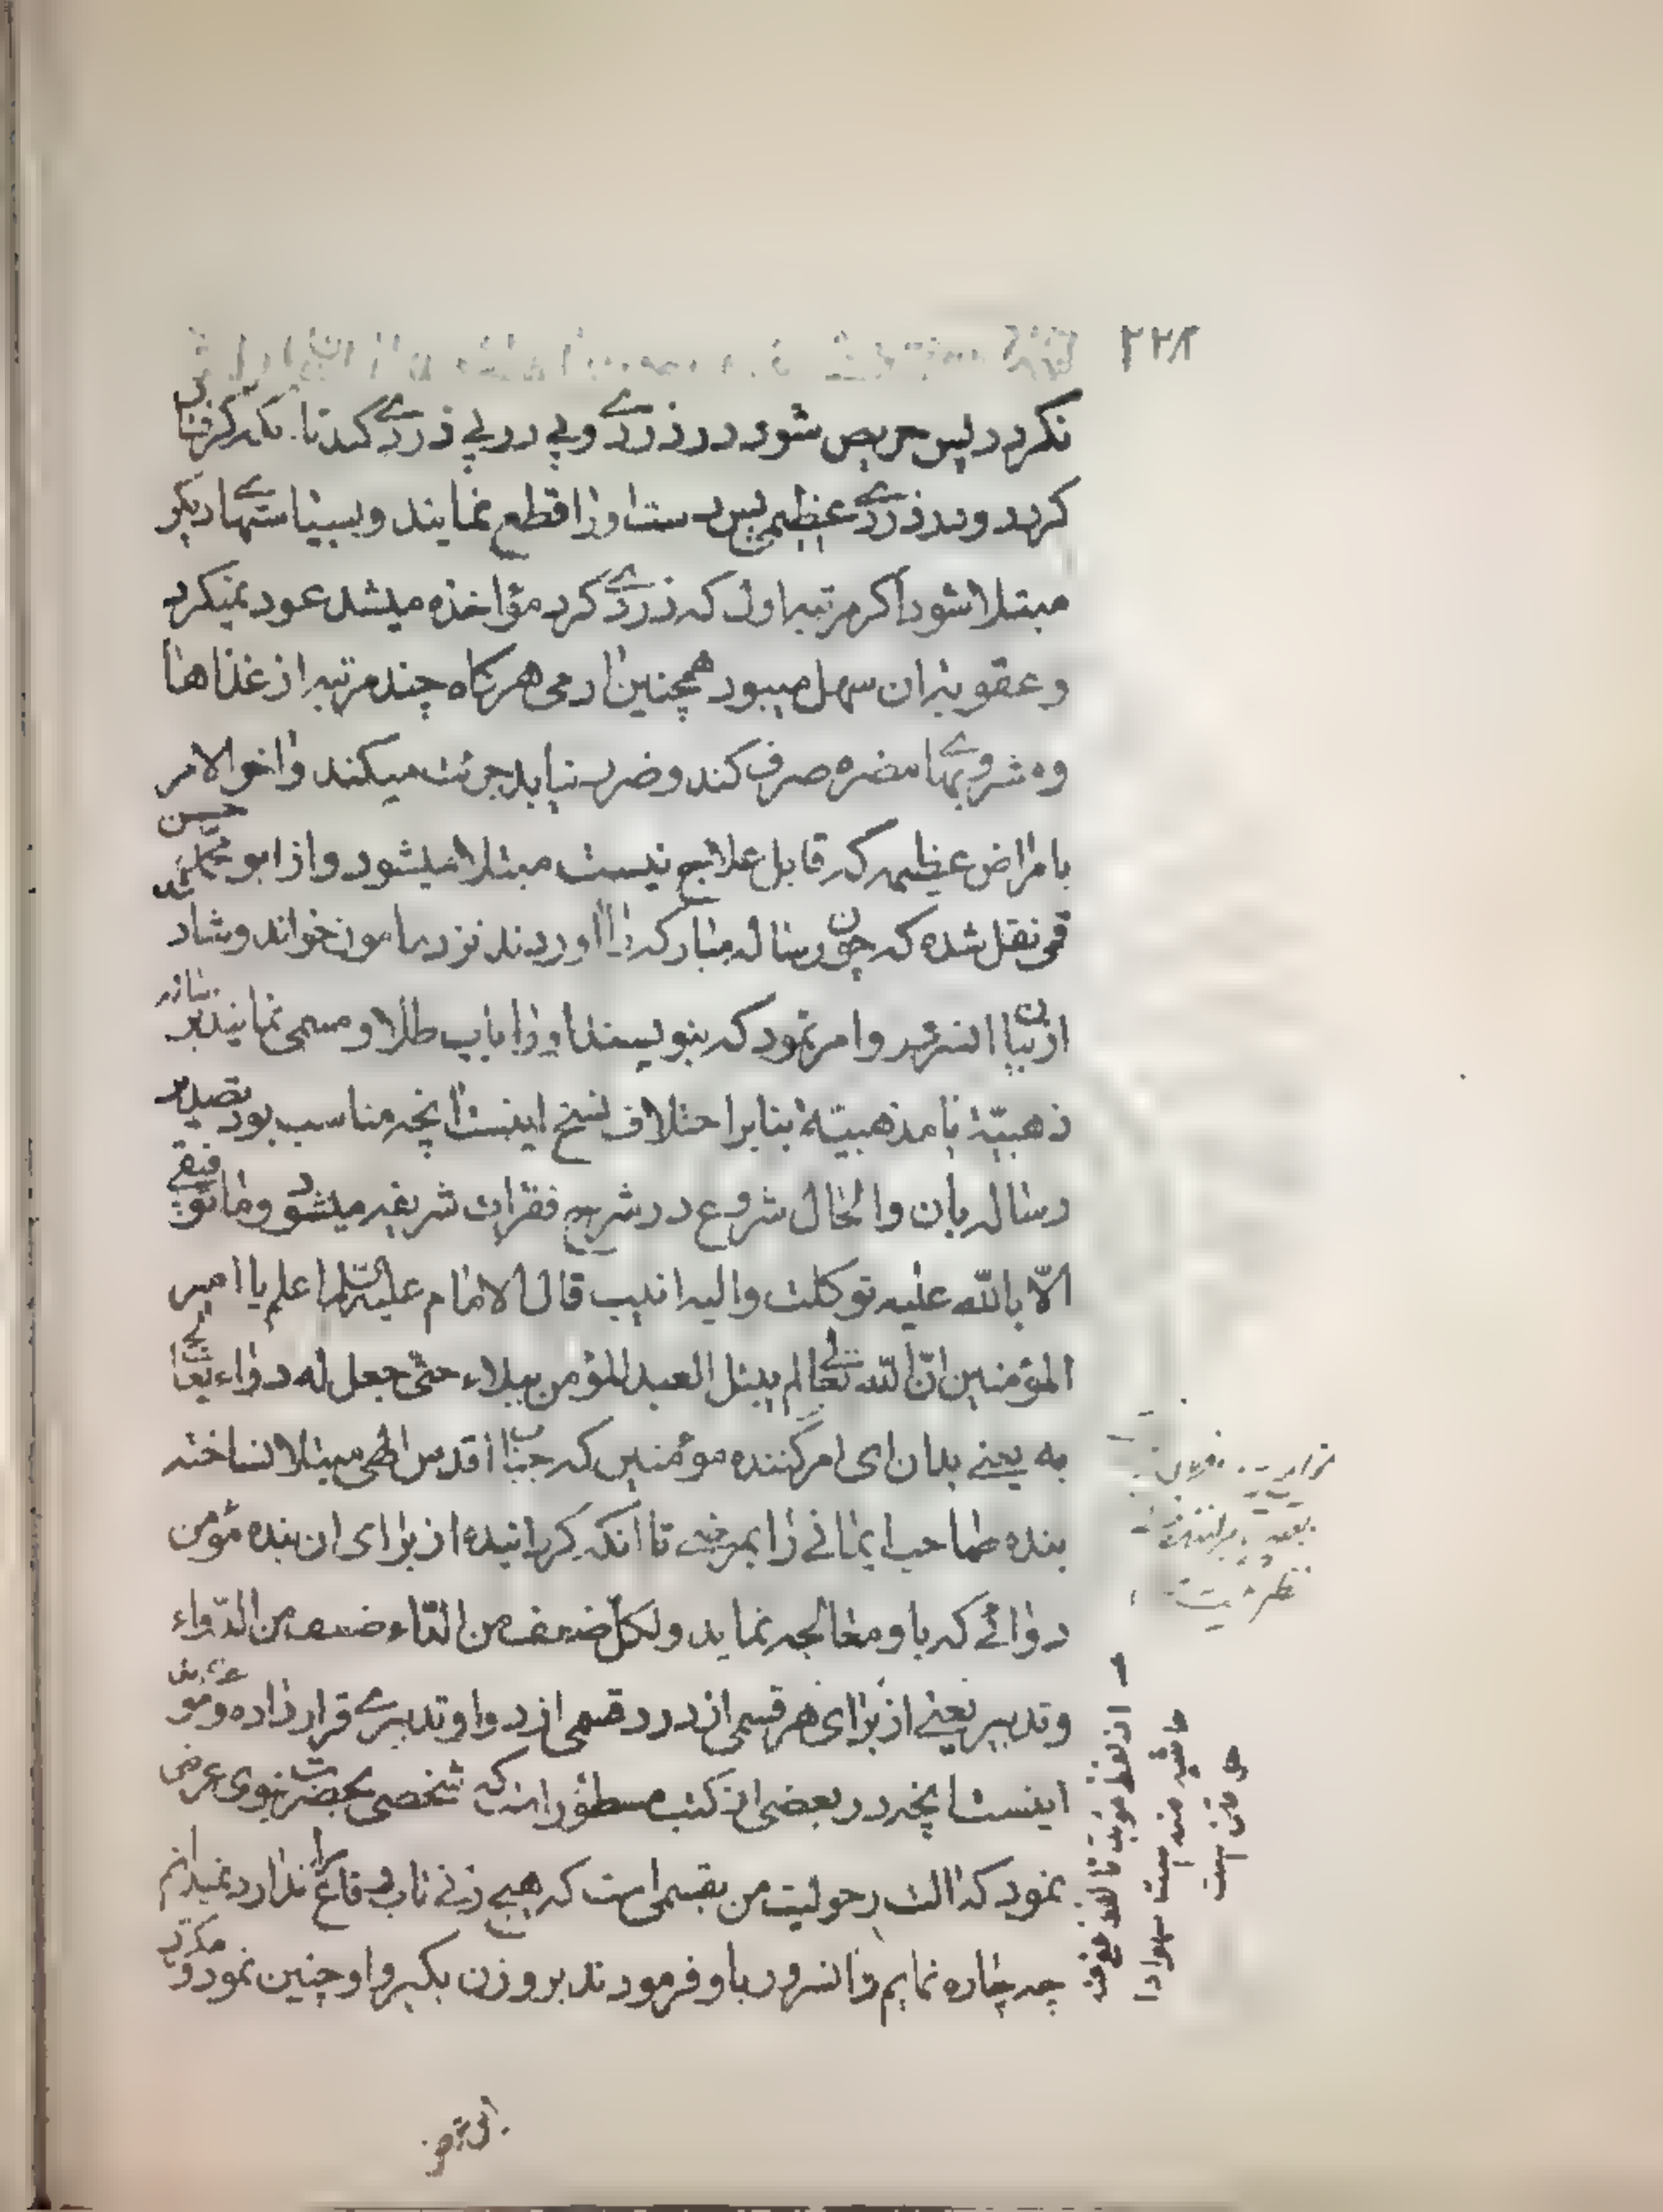 ۲۲۸
نکردد پس حریص شود در دزدے و پی در پی دزدے کند تا
کردد و بدزدے عظیمی پس دست او را قطع نمایند و بسیاستهاے دیکر
مبتلا شود اکر مرتبه اول که دزدے کرد مؤاخذه میشد عود نمیکرد
و عقوبتران سهل میبود همچنین ادمی هرکاه چند مرتبه از غذاها
و مشروبهاے مضره صرف کند و ضرر نیابد جرئت میکند و اخر الامر
بامراض عظیمه که قابل علاج نیست مبتلا میشود و از ابو محمد حسن
قمی نقل شده که چون رساله مبارکه را اوردند نزد مامون خواند و شاد
از بیان انسرور و امر نمود که بنویسند او را باب طلا و مسمی نمایند برساله
ذهبیّة یا مذهبیّة بنابر اختلاف نسخ اینست انچه مناسب بود تصدیر
رساله بان والحال شروع در شرح فقرات شریفه میشود وما توفیقے
الّا بالله علیه توکلت والیه انیب قال الامام علیه السّلم اعلم یا امیر
المؤمنین انّ الله تعالے لم یبتل العبد المؤمن ببلاء حتّی جعل له دواء یعالج
به یعنے بدان ای امرکننده مومنین که جناب اقدس الهی مبتلا نساخته
بنده صاحب ایمانی را بمرضے تا انکه کردانیده از برای ان بنده مؤمن
دوائے که باو معالجه نماید ولکلّ ضعف من الدّاء ضعف من الدّواء
و تدبیر یعنے از برای هر قسمی از درد قسمی از دوا و تدبیرے قرار داده و مؤ
اینست انچه در بعضی از کتب مسطور است که شخصی بحضرت نبوی عرض
نمود که الت رجولیت من بقسمی است که هیچ زنے تاب وقاع مرا ندارد نمیدانم
چه چاره نمایم و انسرور باو فرمودند برو زن بکیر و او چنین نمود و مکرّر